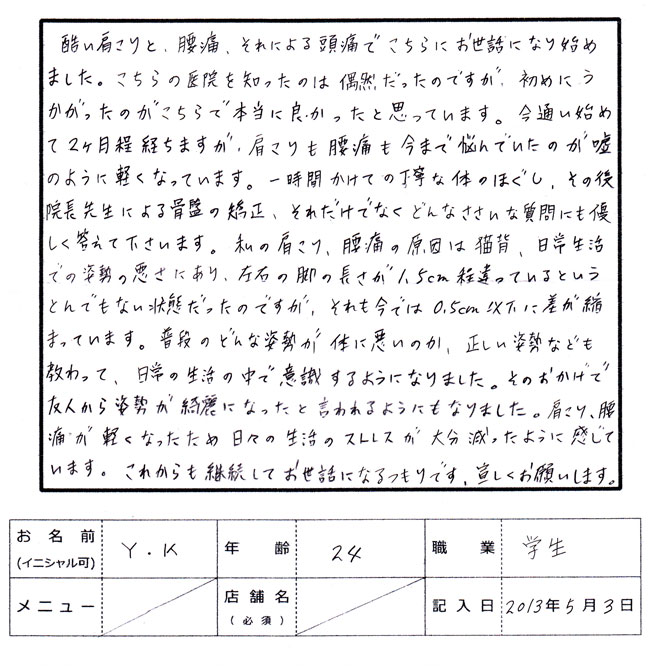 酷い肩こりと、腰痛、それによる頭痛でこちらにお世話になり始め
ました。こちらの医院を知ったのは偶然だったのですが、初めにう
かがったのがこちらで本当に良かったと思っています。今通い始め
て2ヶ月程経ちますが、肩こりも腰痛も今まで悩んでいたのが嘘
のように軽くなっています。一時間かけての丁寧な体のほぐし、その後
院長先生による骨盤の矯正、それだけでなくどんなささいな質問にも優
しく答えて下さいます。私の肩こり、腰痛の原因は猫背、日常生活
での姿勢の悪さにあり、左右の脚の長さが1.5cm程違っているという
とんでもない状態だったのですが、それも今では0.5cm以下に差が縮
まっています。普段のどんな姿勢が体に悪いのか、正しい姿勢なども
教わって、日常の生活の中で意識するようになりました。そのおかげで
友人から姿勢が綺麗になったと言われるようにもなりました。肩こり、腰
痛が軽くなったため日々の生活のストレスが大分減ったように感じて
います。これからも継続してお世話になるつもりです、宜しくお願いします。
お名前 (イニシャル可) Y.K 年齢 24 職業 学生
メニュー 店舗名 (必須) 記入日 2013年5月3日